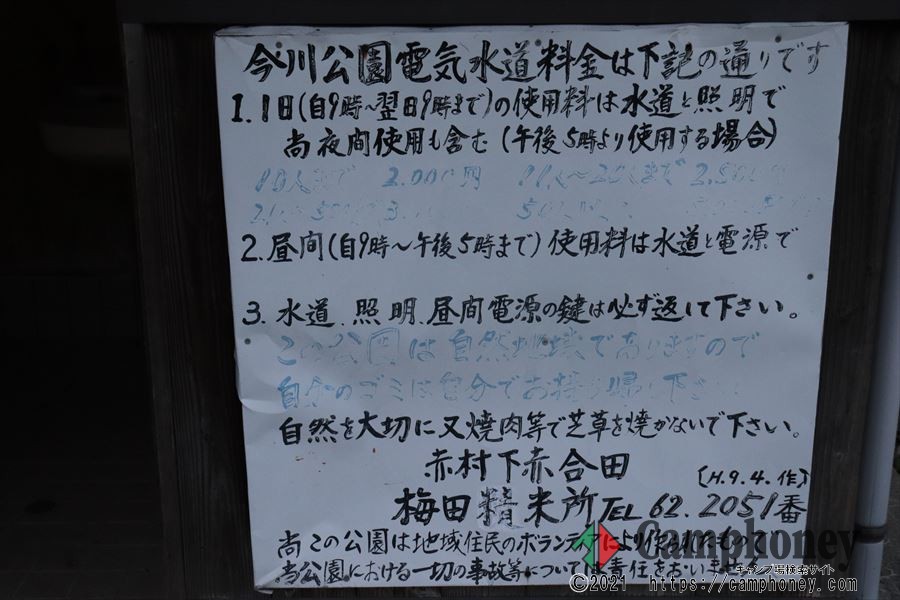 今川公園電気水道料金は下記の通りです
1.1日(自9時~翌日9時まで)の使用料は水道と照明で
尚夜間使用も含む(午後5時より使用する場合)
10人まで 2.000円 11人~20人まで 2.500
2.昼間(自9時~午後5時まで)使用料は水道と電源で
3.水道.照明.昼間電源の鍵は必ず返して下さい。
この公園は自然地域でありますので
自分のゴミは自分でお持ち帰り下さ
自然を大切に又焼肉等で芝草を焼かないで下さい。
赤村下赤合田
〔H.9.4.作〕
梅田精米所 TEL 62.2051番
尚この公園は地域住民のボランティアにより作
尚公園における一切の事故等については責任をおいませ
Camphoney
キャンプ場検索サイト
©2021 https://camphoney.com/